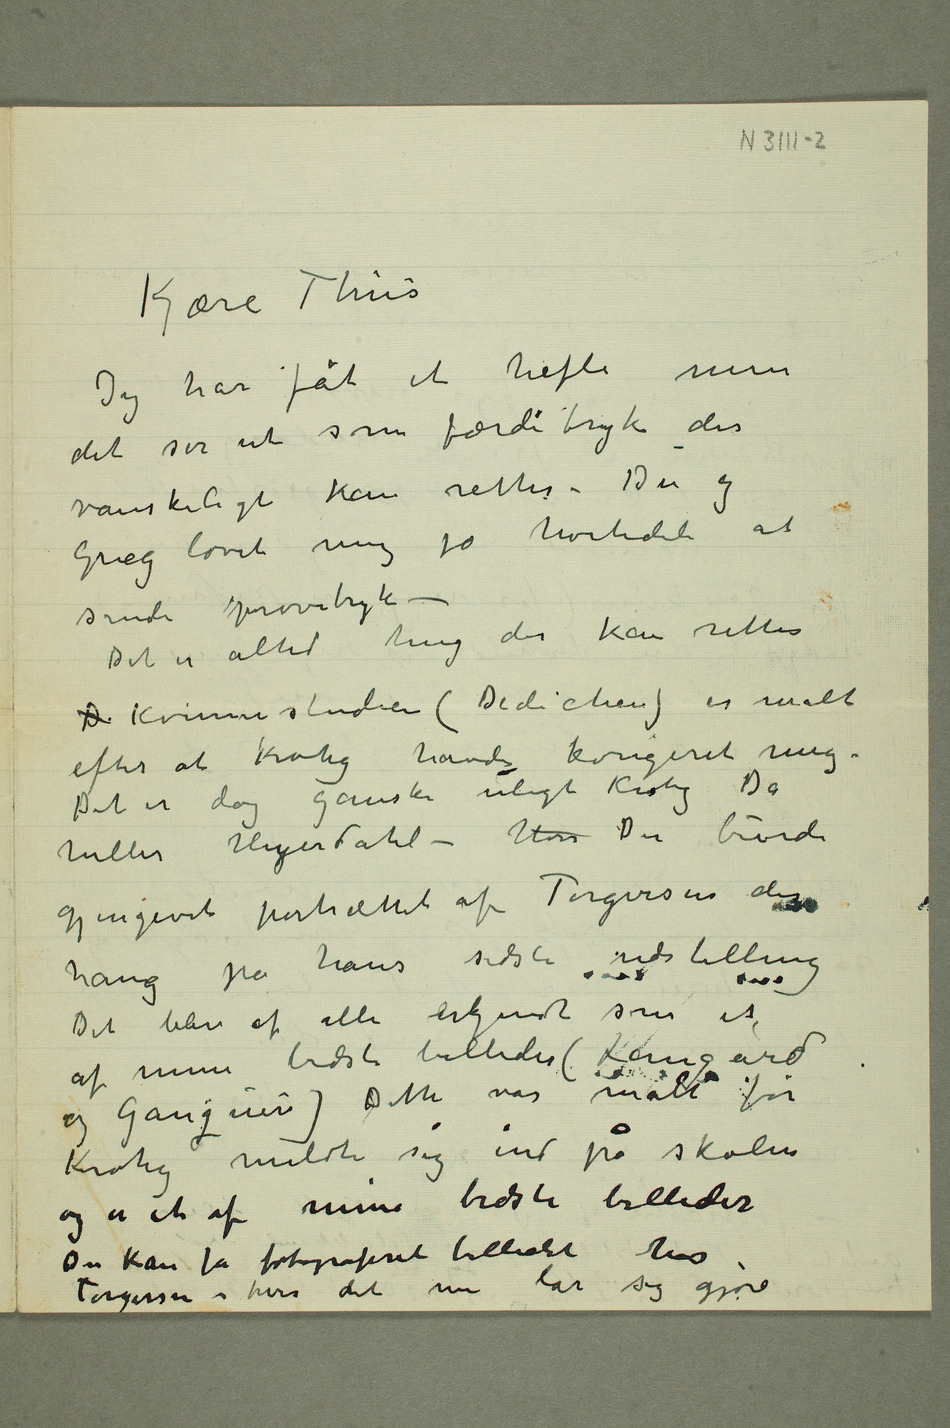 N 3111-2
Kjære Thiis
Jeg har fåt et hefte men
det ser ut som færditryk der
vanskeligt kan rettes – Du og
Grieg lovet mig jo hvertedele at
sende prøvetryk –
Det er altid ting der kan rettes
D Kvinnestudien (Dedichen) er malt
efter at Krohg havde korigeret mig –
Det er dog ganske uligt Krohg Da
heller Heyerdahl – Hvor Du burde
gjengivet portrættet af Torgersen der
hang på hans sidste udstilling
Det blev af alle erkjendt som et
af mine bedste billeder (Langård
og Ganguin) Dette var malt før
Krohg meldte sig ind på skolen
og er et af mine bedste billeder
Du kan få fotograferet billedet hos
Torgersen – hvis det nu lar sig gjøre